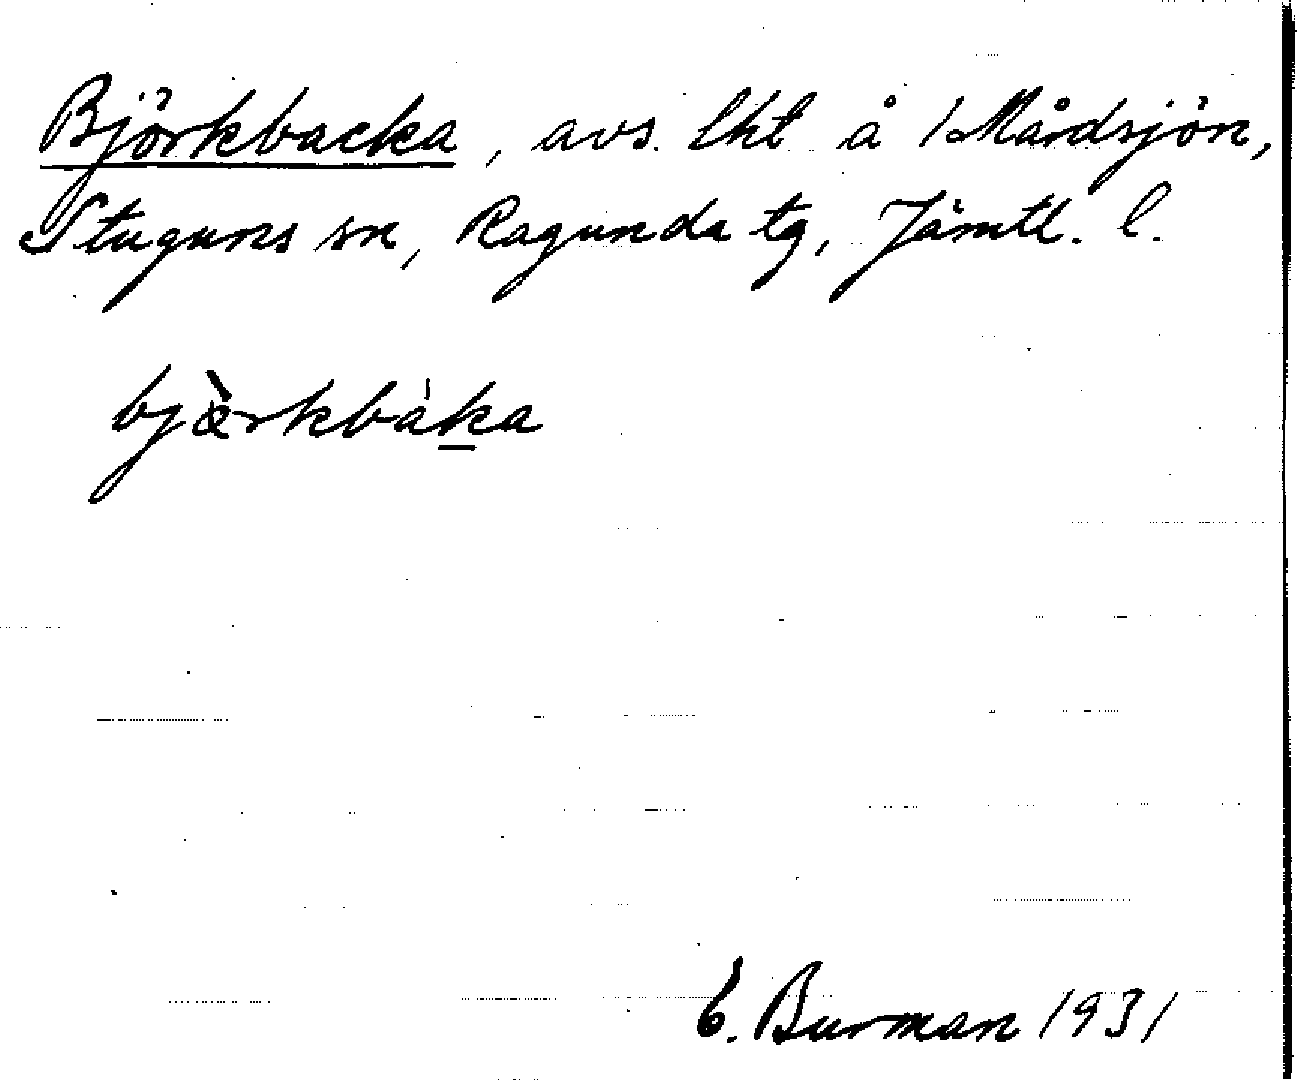 Björkbacka, avs. lht å /Mårdsjön,
Stuguns sn, Ragunda tg, Jämtl. l.
bjὰrkbàk̲a
E. Burman 1931